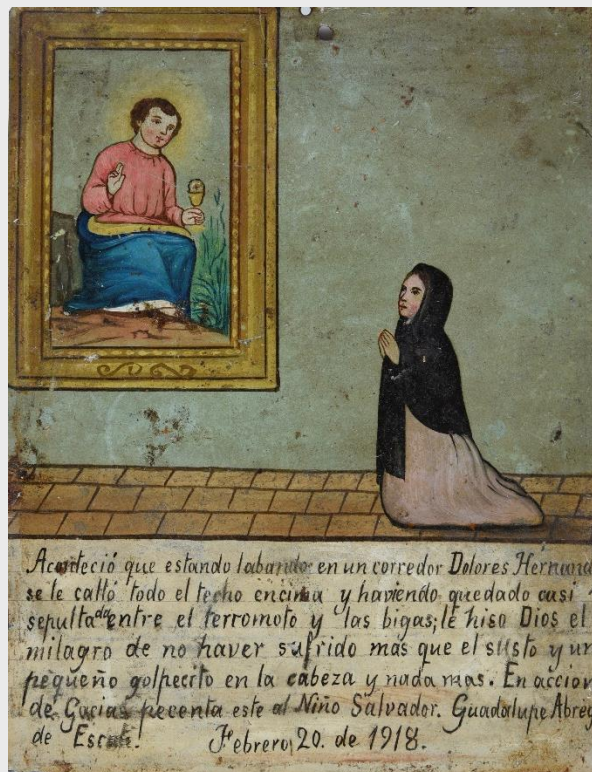 Aconteció que estando labando en un corredor Dolores Hernand
se le calló todo el techo encima y haviendo quedado casi
sepultada entre el terromoto y las bigas; le hiso Dios el
milagro de no haver sufrido mas que el susto y un
pequeño golpecito en la cabeza y nada mas. En accion
de Gacias pecenta este al Niño Salvador. Guadalupe Abreg
de Febrero, 20. de 1918.